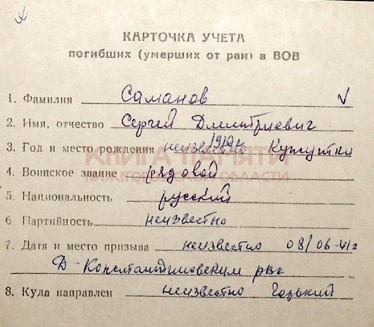 КАРТОЧКА УЧЕТА
погибших (умерших от ран) в ВОВ
1. Фамилия Саманов
2. Имя, отчество Сергей Дмитриевич
3. Год и место рождения неизвестно Кужутки
КНИГА ПАМЯТИ
НИЖЕГОРОДСКОЙ ОБЛАСТИ
4. Воинское звание рядовой
5. Национальность русский
6. Партийность неизвестно
7. Дата и место призыва неизвестно 08/06-41г
Д-Константиновским рвк
8. Куда направлен неизвестно Горький